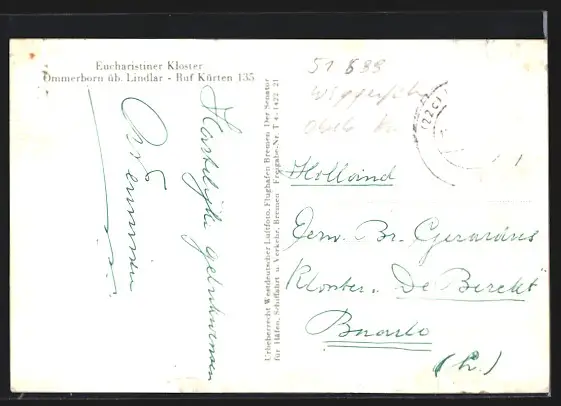 Eucharistiner Kloster
Ommerborn üb. Lindlar - Ruf Kürten 135
Hartelijke gelukwensen
Urheberrecht Westdeutscher Luftfoto, Flughafen Bremen Der Senator
für Häfen, Schiffahrt u. Verkehr, Bremen - Freigabe-Nr. T 4-1422 21
51 699
Holland
Eerw. Br. Gerardus
Klooster "De Berckt"
Baarlo
(L.)